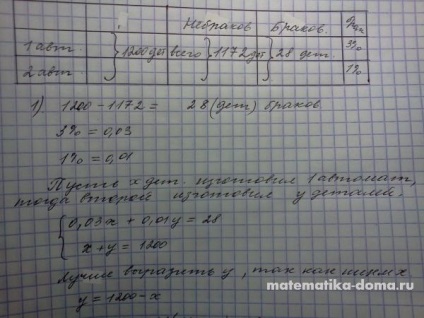 Небраков. Браков.
1 авт. 1200 дет всего 1172 дет 28 дет. 3%
2 авт. 1%
1) 1200 - 1172 = 28 (дет) браков.
3% = 0,03
1% = 0,01
Пусть x дет. изготовил 1 автомат,
тогда второй изготовил y деталей.
0,03x + 0,01y = 28
x + y = 1200
Лучше выразить y, так как ищем x
y = 1200 - x
matematika-doma.ru